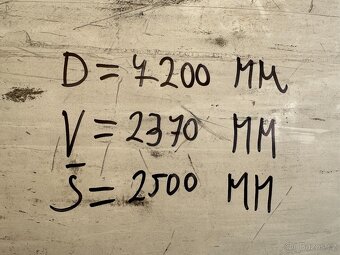 D = 7200 MM
V = 2370 MM
Š = 2500 MM